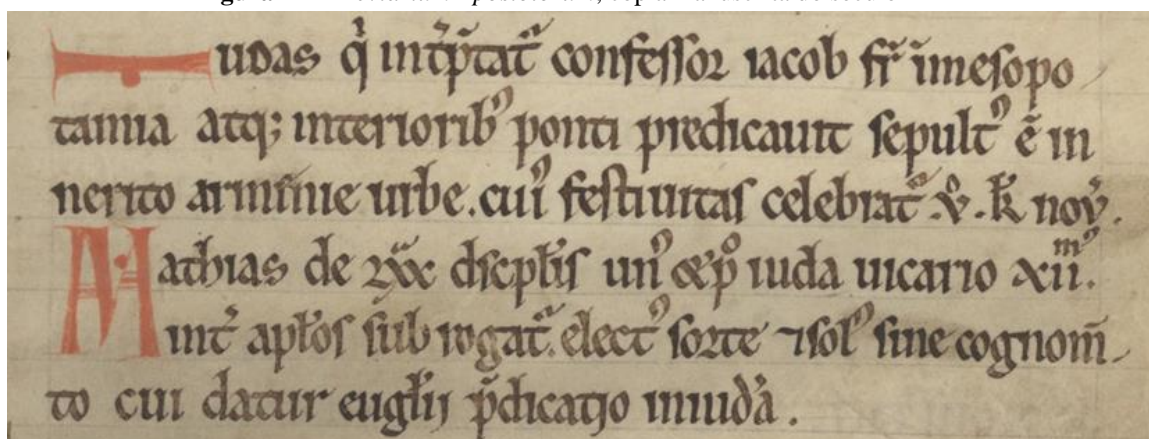 Iudas q̇ int̉p̃tat᷑ confeſſoꝛ iacob fr̃ ĩmeſopo
tamia atq; interiorib᾽ ponti predicauit ſepult᾽ ẽ in
nerito armẽnie urbe. cui᾽ feſtiuitaſ celebrat᷑ .v̊. k̃ nov̉.
Mathias de lxx diſcipl̃is un᾽ & p᾽ iuda uicario xiim᾽.
int̉ apl̃oſ ſub rogat᷑. elect᾽ ſorte ⁊ ſol᾽ ſine cognom̃
to cui datur eugl̃ij p̃dicatio iniudẻa.